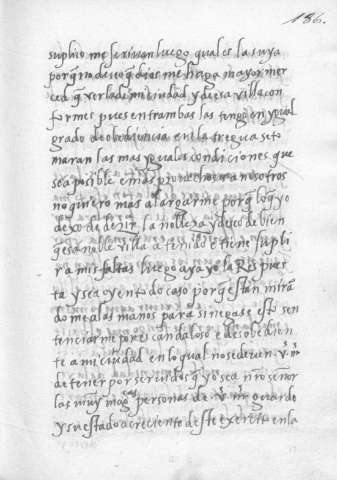 186.
me luego qual es la suya
porq̃ no deseo q̃ dios me haga mayor mer
ced q̃ verla de mi ciudad y de esa villa con
formes pues en trambas las tengo en ygual
grado de obediencia en la tregua se to
maran las mas yguales condiciones que
sea posible e mas a nosotros
no quiero mas alargarme porq̃ lo q̃ yo
dexo de dezir la nobleza y deseo de bien
q̃ esa noble villa a tenido e tiene supli
ra mis faltas luego aya yo la Respues
ta y sea oyentodo caso porq̃ estan miran
dome a las manos para si negase esto sen
tenciarme por escandaloso e desobedien
te a mi ciudad en lo qual no se deven v. m
de tener por servidos q̃ yo sea nr̃o señor
las muy mag.cas personas de v. m guarde
y su estado acreciente deste exercito en la